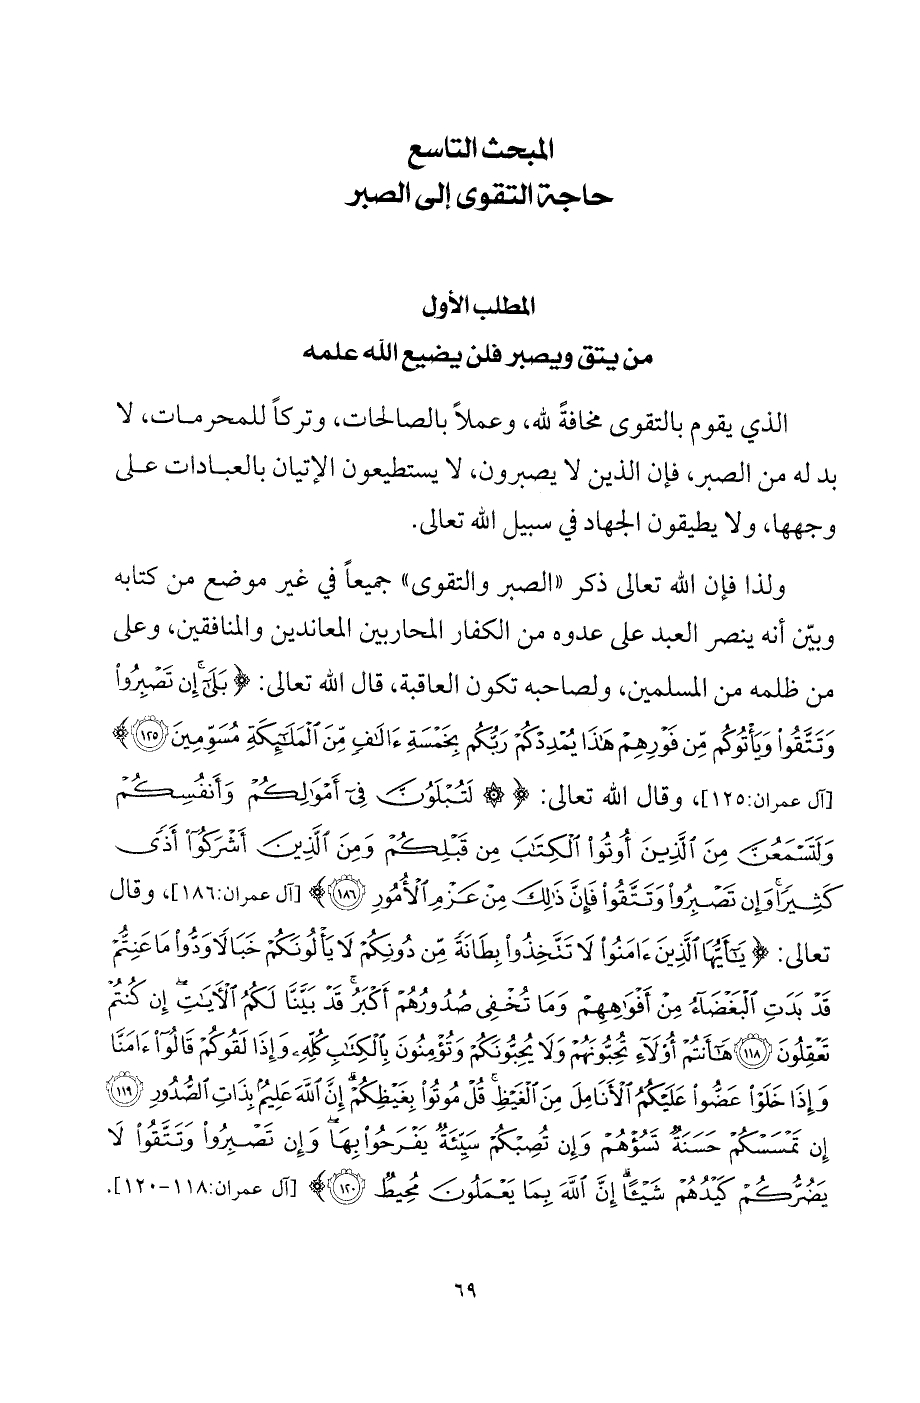 المبحث التاسع
حاجة التقوى إلى الصبر
المطلب الأول
من يتق ويصبر فلن يضيع الله علمه
الذي يقوم بالتقوى مخافةً لله، وعملاً بالصالحات، وتركاً للمحرمات، لا
بد له من الصبر، فإن الذين لا يصبرون، لا يستطيعون الإتيان بالعبادات على
وجهها، ولا يطيقون الجهاد في سبيل الله تعالى.
ولذا فإن الله تعالى ذكر «الصبر والتقوى» جميعاً في غير موضع من كتابه
وبيّن أنه ينصر العبد على عدوه من الكفار المحاربين المعاندين والمنافقين، وعلى
من ظلمه من المسلمين، ولصاحبه تكون العاقبة، قال الله تعالى: ﴿ بَلَىٰٓۚ إِن تَصۡبِرُواْ
وَتَتَّقُواْ وَيَأۡتُوكُم مِّن فَوۡرِهِمۡ هَٰذَا يُمۡدِدۡكُمۡ رَبُّكُم بِخَمۡسَةِ ءَالَٰفٖ مِّنَ ٱلۡمَلَٰٓئِكَةِ مُسَوِّمِينَ ١٢٥ ﴾
[آل عمران:١٢٥]، وقال الله تعالى: ﴿ ۞ لَتُبۡلَوُنَّ فِيٓ أَمۡوَٰلِكُمۡ وَأَنفُسِكُمۡ
وَلَتَسۡمَعُنَّ مِنَ ٱلَّذِينَ أُوتُواْ ٱلۡكِتَٰبَ مِن قَبۡلِكُمۡ وَمِنَ ٱلَّذِينَ أَشۡرَكُوٓاْ أَذٗى
كَثِيرٗاۚ وَإِن تَصۡبِرُواْ وَتَتَّقُواْ فَإِنَّ ذَٰلِكَ مِنۡ عَزۡمِ ٱلۡأُمُورِ ١٨٦ ﴾ [آل عمران:١٨٦]، وقال
تعالى: ﴿ يَٰٓأَيُّهَا ٱلَّذِينَ ءَامَنُواْ لَا تَتَّخِذُواْ بِطَانَةٗ مِّن دُونِكُمۡ لَا يَأۡلُونَكُمۡ خَبَالٗا وَدُّواْ مَا عَنِتُّمۡ
قَدۡ بَدَتِ ٱلۡبَغۡضَآءُ مِنۡ أَفۡوَٰهِهِمۡ وَمَا تُخۡفِي صُدُورُهُمۡ أَكۡبَرُۚ قَدۡ بَيَّنَّا لَكُمُ ٱلۡأٓيَٰتِۖ إِن كُنتُمۡ
تَعۡقِلُونَ ١١٨ هَٰٓأَنتُمۡ أُوْلَآءِ تُحِبُّونَهُمۡ وَلَا يُحِبُّونَكُمۡ وَتُؤۡمِنُونَ بِٱلۡكِتَٰبِ كُلِّهِۦ وَإِذَا لَقُوكُمۡ قَالُوٓاْ ءَامَنَّا
وَإِذَا خَلَوۡاْ عَضُّواْ عَلَيۡكُمُ ٱلۡأَنَامِلَ مِنَ ٱلۡغَيۡظِۚ قُلۡ مُوتُواْ بِغَيۡظِكُمۡۗ إِنَّ ٱللَّهَ عَلِيمُۢ بِذَاتِ ٱلصُّدُورِ ١١٩
إِن تَمۡسَسۡكُمۡ حَسَنَةٞ تَسُؤۡهُمۡ وَإِن تُصِبۡكُمۡ سَيِّئَةٞ يَفۡرَحُواْ بِهَاۖ وَإِن تَصۡبِرُواْ وَتَتَّقُواْ لَا
يَضُرُّكُمۡ كَيۡدُهُمۡ شَيۡـًٔاۗ إِنَّ ٱللَّهَ بِمَا يَعۡمَلُونَ مُحِيطٞ ١٢٠ ﴾ [آل عمران:١١٨-١٢٠].
٦٩